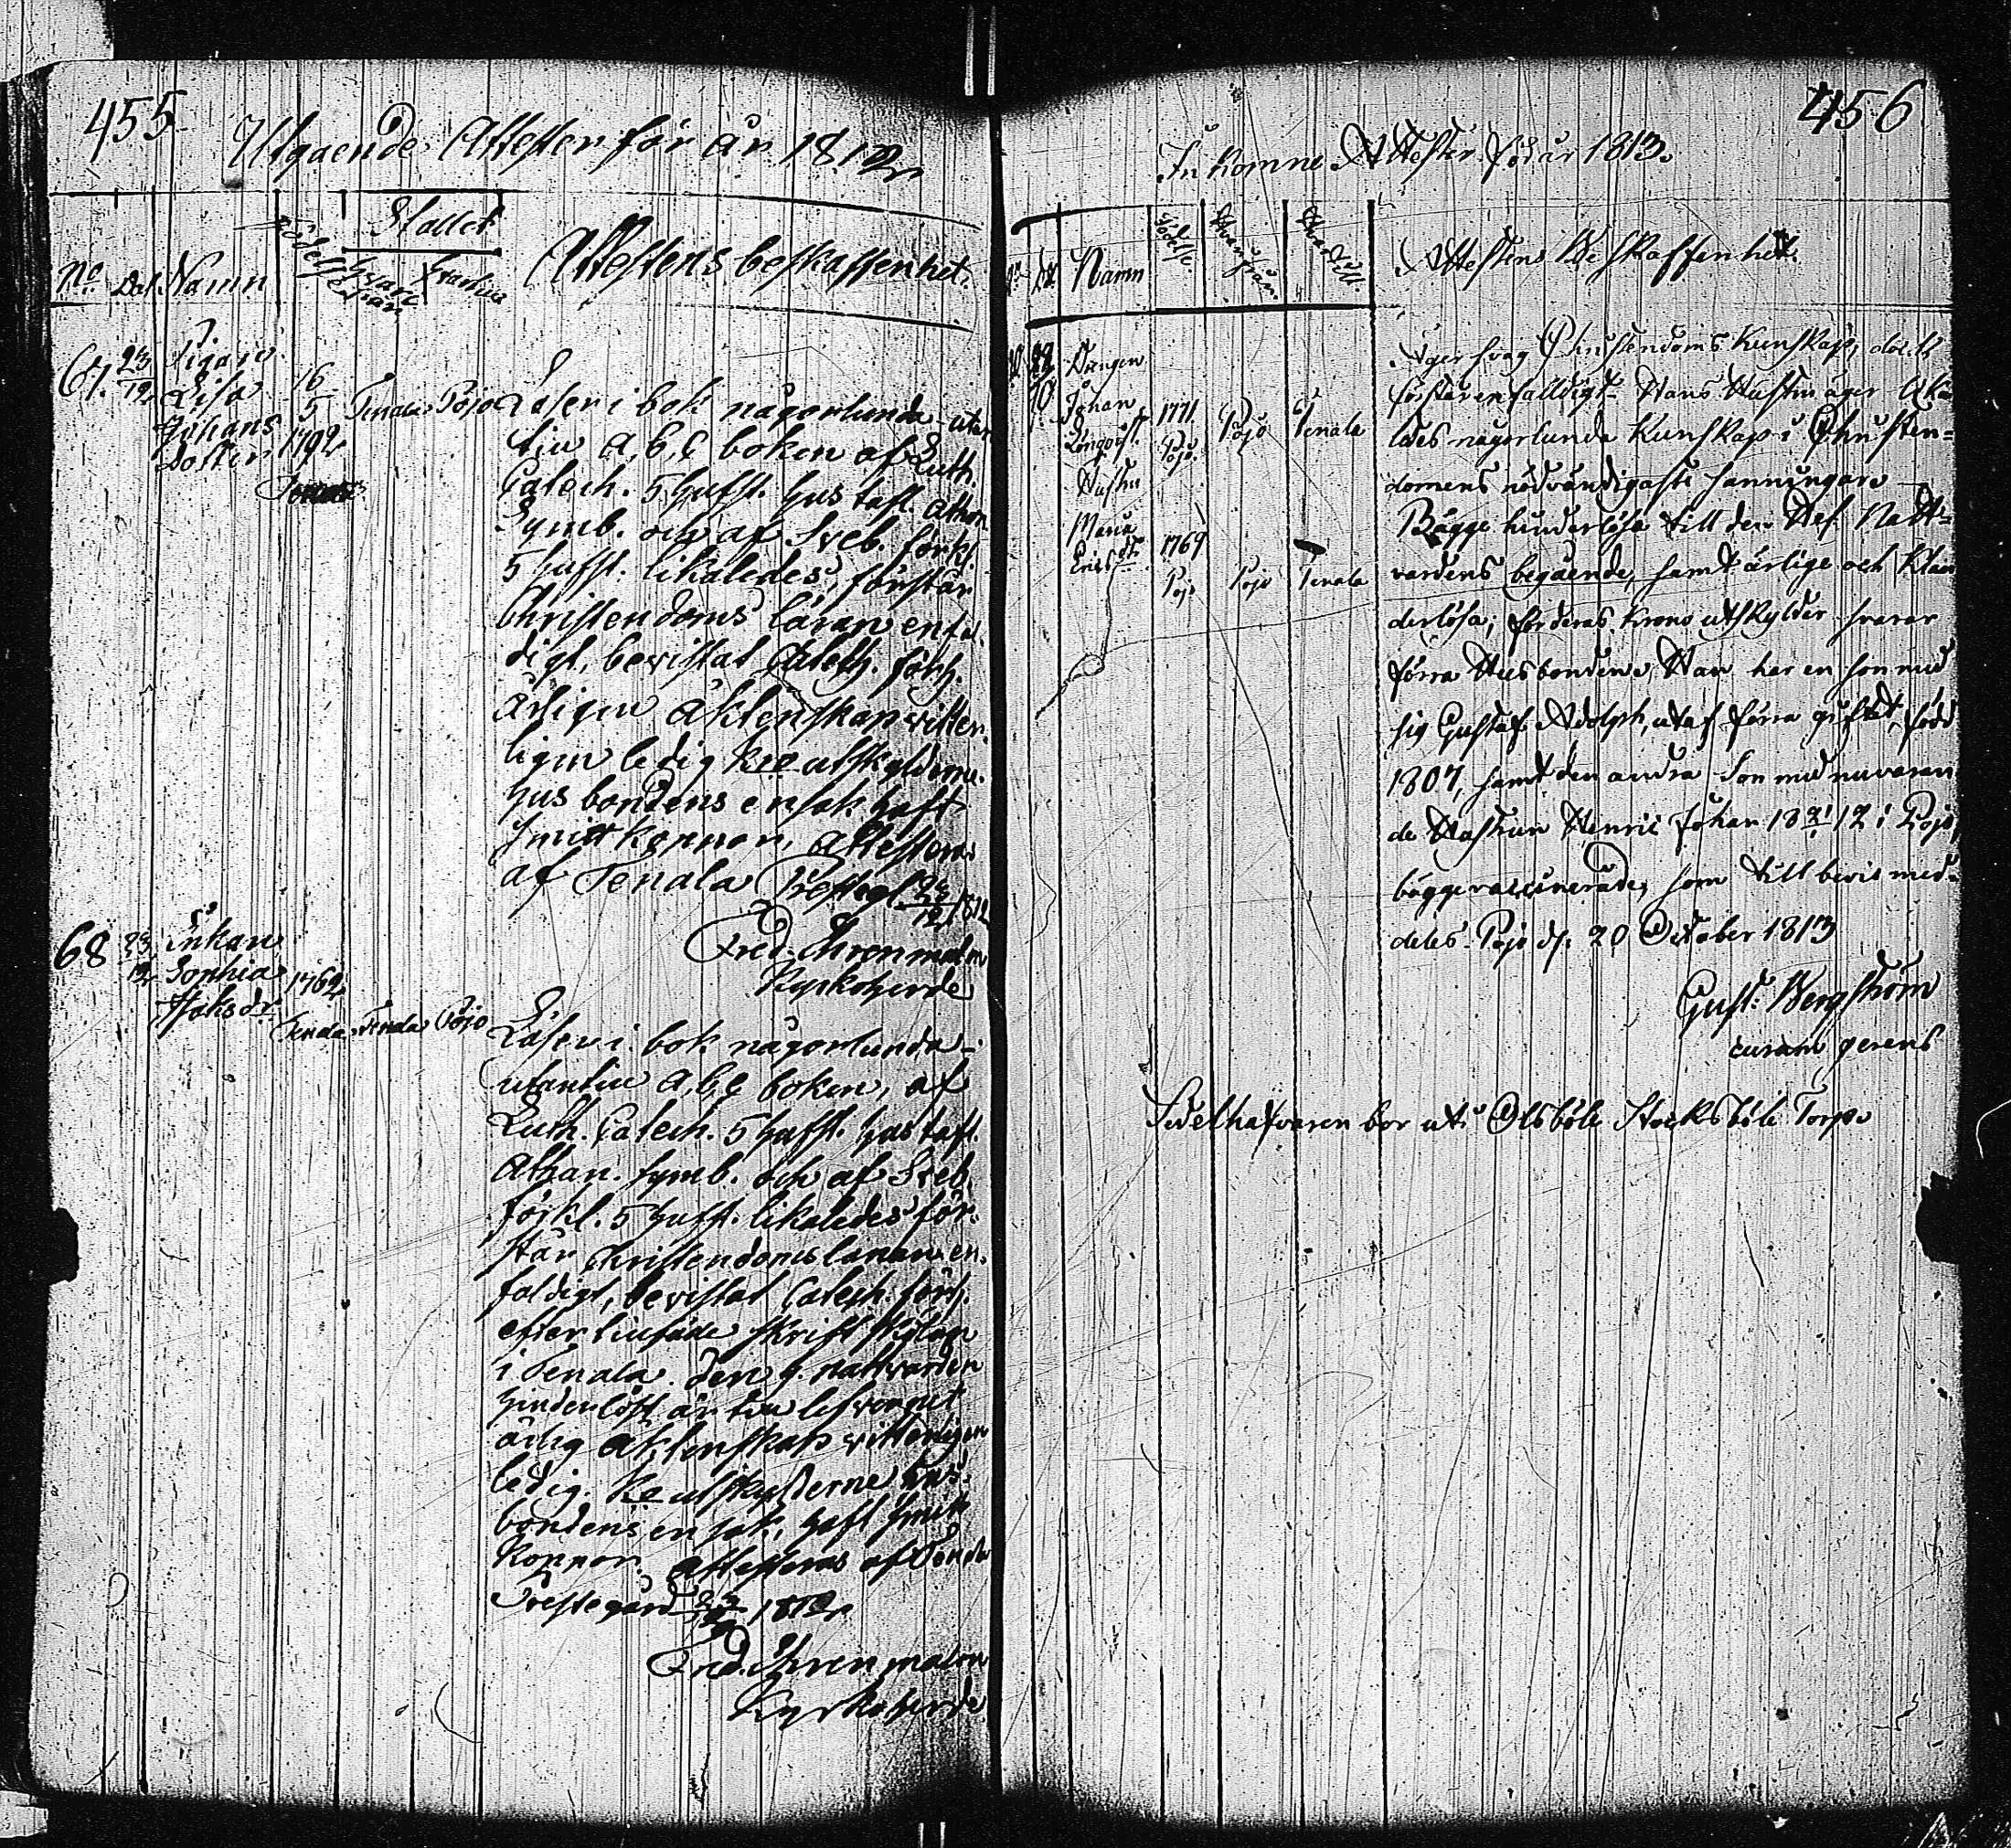 455
Utgaende Attester för år 1812
Stället
No. Dat. Namn
Födelse
hvarifrån
hvarthin
Attestens beskaffenhet.
67. 23/12
Pigan
Lisa
Johans
Dotter
16
5
1792
Tenala
Tenala Pojo
Läser i bok någorlunda utan
till a, b, c boken af Luth.
Catech. 5 hufst. hustafl. Athan
Symb. och af Sveb. förkl.
5 hufst. likaledes, förstår
Christendoms läran enfal
digt, bevistat Catech. förh.
ärligen äktenskap vitter
ligen ledig Kro utskylderne
husbondens ensak haft
smittkoppor, Attesteras
af Tenala Prestegd 23/12 1812
Fred. Ehrenmalm
Kyrkoherde
68 23/12
Enkan
Sophia
Jakobsdr
1762
Tenala Tenala Pojo
Läser i bok någorlunda
utantill a, b, c boken, af
Luth. Catech. 5 hufst. hustafl.
Athan. symb. och af Sveb.
förkl. 5 hufst. likaledes för
står Christendoms läran en
faldigt, bevistat Catech. förh.
efter skrift
i Tenala den h. nattvarden
hinderlöst är till lefvernet
ärlig äktenskap vitterligen
ledig. Kro utskylderne hus
bondens ensak, haft smitt
koppor. attesteras af Tenala
Prestegård 23/12 1812
Fred. Ehrenmalm
Kyrkoherde
456
Inkomne Attester för år 1813.
No Dat. Namn
Födelse
Hvarifrån
Hvartill
Attestens Beskaffenhet.
22/10
Drängen
Johan
Löngqvist
1771
Pojo
Pojo Tenala
Hustru
Maria
Ericsdr
1769
Pojo
Pojo Tenala
Äger svag Christendoms Kunskap, dock
förstår enfalldigt. Hans Hustru äger lika
ledes någorlunda Kunskap i Christen=
domens nödvändigaste sanningar
Bägge hinderlösa till den Hel. Natt=
vardens begående, samt ärlige och klan
derlösa; för deras Krono utskylder svarar
förra Husbonden. Han har en son med
sig Gustaf Adolph, utaf förra giftet, född
1807, samt den andra Son med nuvaran
de Hustrun Henric Johan 18 21/1 12 i Pojo,
bägge vaccinerade, som till bevis med=
deles. Pojo d. 20 October 1813
Gust. Bergström
curam gerens
Sedelhafvaren bor uti Olsböle Stocksböle Torp.